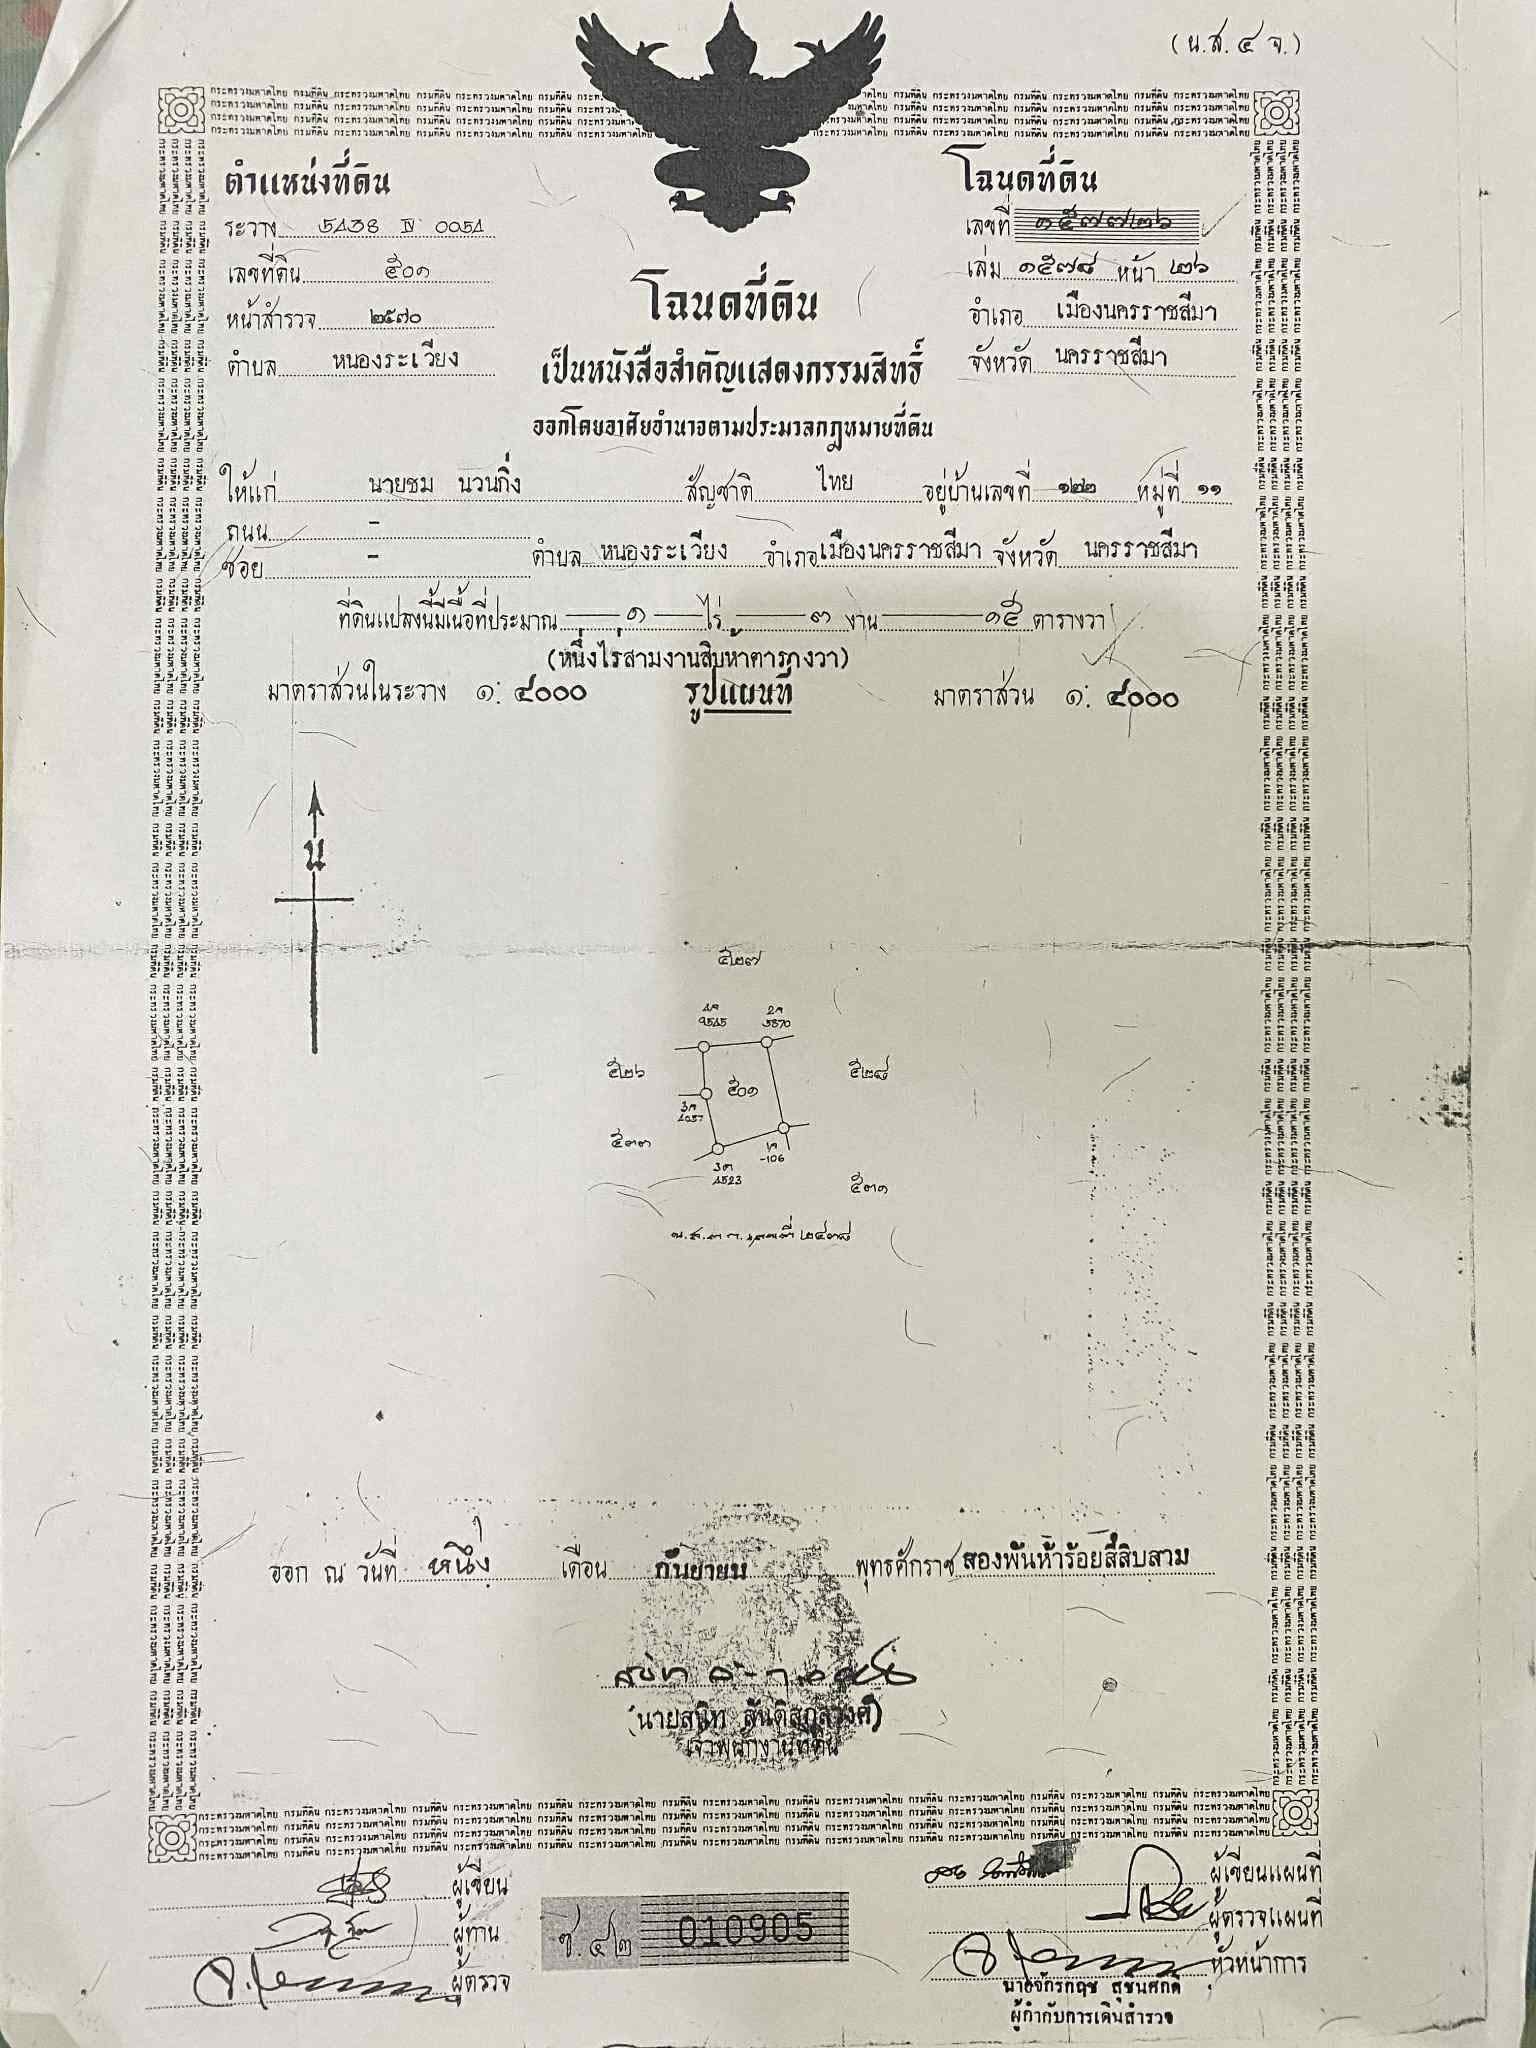 (น.ส.๔ จ.)
ตำแหน่งที่ดิน
ระวาง 5438 IV 0054
เลขที่ดิน ๕๐๑
หน้าสำรวจ ๒๕๗๐
ตำบล หนองระเวียง
โฉนดที่ดิน
เลขที่ ๑๕๗๗๒๖
เล่ม ๑๕๗๘ หน้า ๒๖
อำเภอ เมืองนครราชสีมา
จังหวัด นครราชสีมา
โฉนดที่ดิน
เป็นหนังสือสำคัญแสดงกรรมสิทธิ์
ออกโดยอาศัยอำนาจตามประมวลกฎหมายที่ดิน
ให้แก่ นายชม นวนกิ่ง สัญชาติ ไทย อยู่บ้านเลขที่ ๑๒๒ หมู่ที่ ๑๑
ถนน -
ซอย - ตำบล หนองระเวียง อำเภอ เมืองนครราชสีมา จังหวัด นครราชสีมา
ที่ดินแปลงนี้มีเนื้อที่ประมาณ ๑ ไร่ ๓ งาน ๑๕ ตารางวา
(หนึ่งไร่สามงานสิบห้าตารางวา)
มาตราส่วนในระวาง ๑: ๔๐๐๐ รูปแผนที่ มาตราส่วน ๑: ๔๐๐๐
น
๕๒๗
๕๒๖
๕๐๑
๕๒๘
๕๓๓
-106
๕๓๑
น.ส.๓ ก. เลขที่ ๒๔๓๘
ออก ณ วันที่ หนึ่ง เดือน กันยายน พุทธศักราช สองพันห้าร้อยสี่สิบสาม
(นายสนิท สันติสกุลวงศ์)
เจ้าพนักงานที่ดิน
ผู้เขียน
ผู้ทาน
ผู้ตรวจ
ช. ๔๒ 010905
ผู้เขียนแผนที่
ผู้ตรวจแผนที่
หัวหน้าการ
ผู้กำกับการเดินสำรวจ